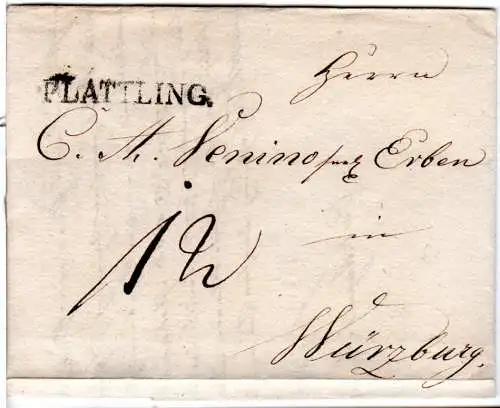 PLATTLING.
Herrn
C. A. Venino seel Erben
12
in
Würzburg.